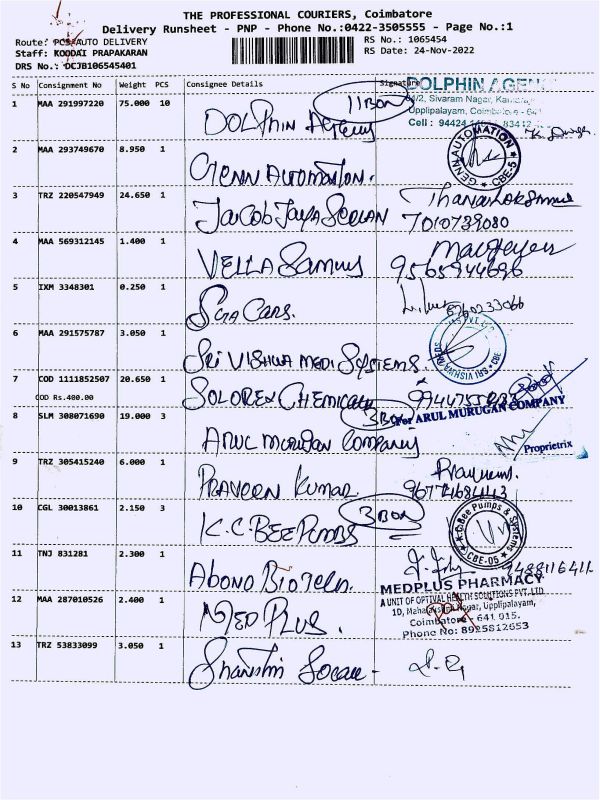 THE PROFESSIONAL COURIERS, Coimbatore
Delivery Runsheet - PNP - Phone No.:0422-3505555 - Page No.:1
Route: POS AUTO DELIVERY
RS No.: 1065454
Staff: KOODAI PRAPAKARAN
RS Date: 24-Nov-2022
DRS No.: DCJB106545401
S No Consignment No Weight PCS Consignee Details Signature
DOLPHIN AGEN
1 MAA 291997220 75.000 10 DOLPHIN Agency 11 BOX
Sivaram Nagar,
Upplipalayam, Coimbatore - 641
Cell : 94424
2 MAA 293749670 8.950 1 GENN AUTOMATION.
GENN AUTOMATION CBE-5
3 TRZ 220547949 24.650 1 Jacob Jaya
7010739080
4 MAA 569312145 1.400 1 VELLA
9565944696
5 IXM 3348301 0.250 1 Cars.
6 MAA 291575787 3.050 1 SRI VISHWA MEDI SYSTEMS.
7 COD 1111852507 20.650 1 SOLOREX CHEMICALS
COD Rs.400.00
8 SLM 308071690 19.000 3 ARUL MURUGAN COMPANY 3 BOX
For ARUL MURUGAN COMPANY
Proprietrix
9 TRZ 305415240 6.000 1 PRAVEEN KUMAR
Praveen
10 CGL 30013861 2.150 3 K.C. BEE PUMBS 3 BOX
Bee Pumps & Systems CBE-05
11 TNJ 831281 2.300 1 ABONO BIOTECH.
9488116411
MEDPLUS PHARMACY
A UNIT OF OPTIVAL HEALTH SOLUTIONS PVT. LTD
12 MAA 287010526 2.400 1 MED PLUS.
Nagar, Upplipalayam,
Coimbatore - 641 015.
Phone No: 8925812653
13 TRZ 53833099 3.050 1 Shanthi